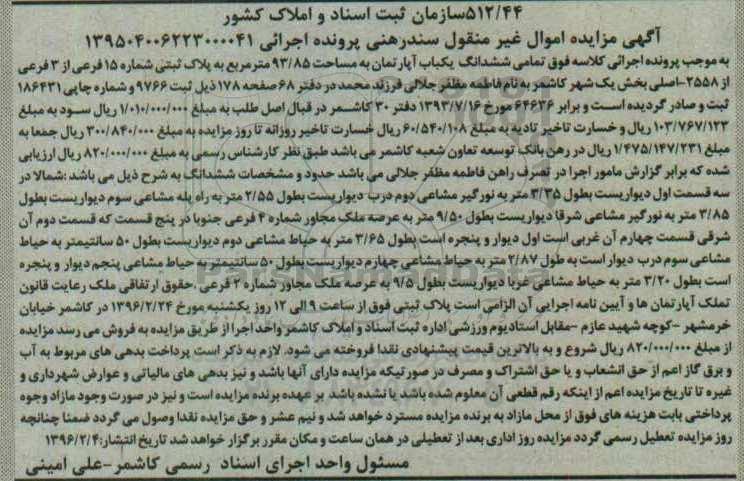 ۵۱۲/۴۴سازمان ثبت اسناد و املاک کشور
آگهی مزایده اموال غیر منقول سندرهنی پرونده اجرائی ۱۳۹۵۰۴۰۰۶۲۲۳۰۰۰۰۴۱
به موجب پرونده اجرائی کلاسه فوق تمامی ششدانگ یکباب آپارتمان به مساحت ۹۳/۸۵ مترمربع به پلاک ثبتی شماره ۱۵ فرعی از ۳ فرعی
از ۲۵۵۸-اصلی بخش یک شهر کاشمر به نام فاطمه مظفر جلالی فرزند محمد در دفتر ۶۸ صفحه ۱۷۸ ذیل ثبت ۹۷۶۶ و شماره چاپی ۱۸۶۴۳۱
ثبت و صادر گردیده است و برابر ۶۴۶۳۶ مورخ ۱۳۹۳/۷/۱۶ دفتر ۳۰ کاشمر در قبال اصل طلب به مبلغ ۱/۰۱۰/۰۰۰/۰۰۰ ریال سود به مبلغ
۱۰۳/۷۶۷/۱۲۳ ریال و خسارت تاخیر تادیه به مبلغ ۶۰/۵۴۰/۱۰۸ ریال خسارت تاخیر روزانه تا روز مزایده به مبلغ ۳۰۰/۸۴۰/۰۰۰ ریال جمعا به
مبلغ ۱/۴۷۵/۱۴۷/۲۳۱ ریال در رهن بانک توسعه تعاون شعبه کاشمر می باشد طبق نظر کارشناس رسمی به مبلغ ۸۲۰/۰۰۰/۰۰۰ ریال ارزیابی
شده که برابر گزارش مامور اجرا در تصرف راهن فاطمه مظفر جلالی می باشد حدود و مشخصات ششدانگ به شرح ذیل می باشد :شمالا در
سه قسمت اول دیواریست بطول ۳/۳۵ متر به نورگیر مشاعی دوم درب دیواریست بطول ۲/۵۵ متر به راه پله مشاعی سوم دیواریست بطول
۳/۸۵ متر به نورگیر مشاعی شرقا دیواریست بطول ۹/۵۰ متر به عرصه ملک مجاور شماره ۴ فرعی جنوبا در پنج قسمت که قسمت دوم آن
شرقی قسمت چهارم آن غربی است اول دیوار و پنجره است بطول ۳/۶۵ متر به حیاط مشاعی دوم دیواریست بطول ۵۰ سانتیمتر به حیاط
مشاعی سوم درب دیوار است به طول ۲/۸۷ متر به حیاط مشاعی چهارم دیواریست بطول ۵۰ سانتیمتر به حیاط مشاعی پنجم دیوار و پنجره
است بطول ۳/۲۰ متر به حیاط مشاعی غربا دیواریست بطول ۹/۵ به عرصه ملک مجاور شماره ۲ فرعی .حقوق ارتفاقی ملک رعایت قانون
تملک آپارتمان ها و آیین نامه اجرایی آن الزامی است پلاک ثبتی فوق از ساعت ۹ الی ۱۲ روز یکشنبه مورخ ۱۳۹۶/۲/۲۴ در کاشمر خیابان
خرمشهر -کوچه شهید عازم -مقابل استادیوم ورزشی اداره ثبت اسناد و املاک کاشمر واحد اجرا از طریق مزایده به فروش می رسد مزایده
از مبلغ ۸۲۰/۰۰۰/۰۰۰ ریال شروع و به بالاترین قیمت پیشنهادی نقدا فروخته می شود. لازم به ذکر است پرداخت بدهی های مربوط به آب
و برق گاز اعم از حق انشعاب و یا حق اشتراک و مصرف در صورتیکه مزایده دارای آنها باشد و نیز بدهی های مالیاتی و عوارض شهرداری و
غیره تا تاریخ مزایده اعم از اینکه رقم قطعی آن معلوم شده باشد یا نشده باشد بر عهده برنده مزایده است و نیز در صورت وجود مازاد وجوه
پرداختی بابت هزینه های فوق از محل مازاد به برنده مزایده مسترد خواهد شد و نیم عشر و حق مزایده نقدا وصول می گردد ضمنا چنانچه
روز مزایده تعطیل رسمی گردد مزایده روز اداری بعد از تعطیلی در همان ساعت و مکان مقرر برگزار خواهد شد تاریخ انتشار:۱۳۹۶/۲/۴
مسئول واحد اجرای اسناد رسمی کاشمر-علی امینی